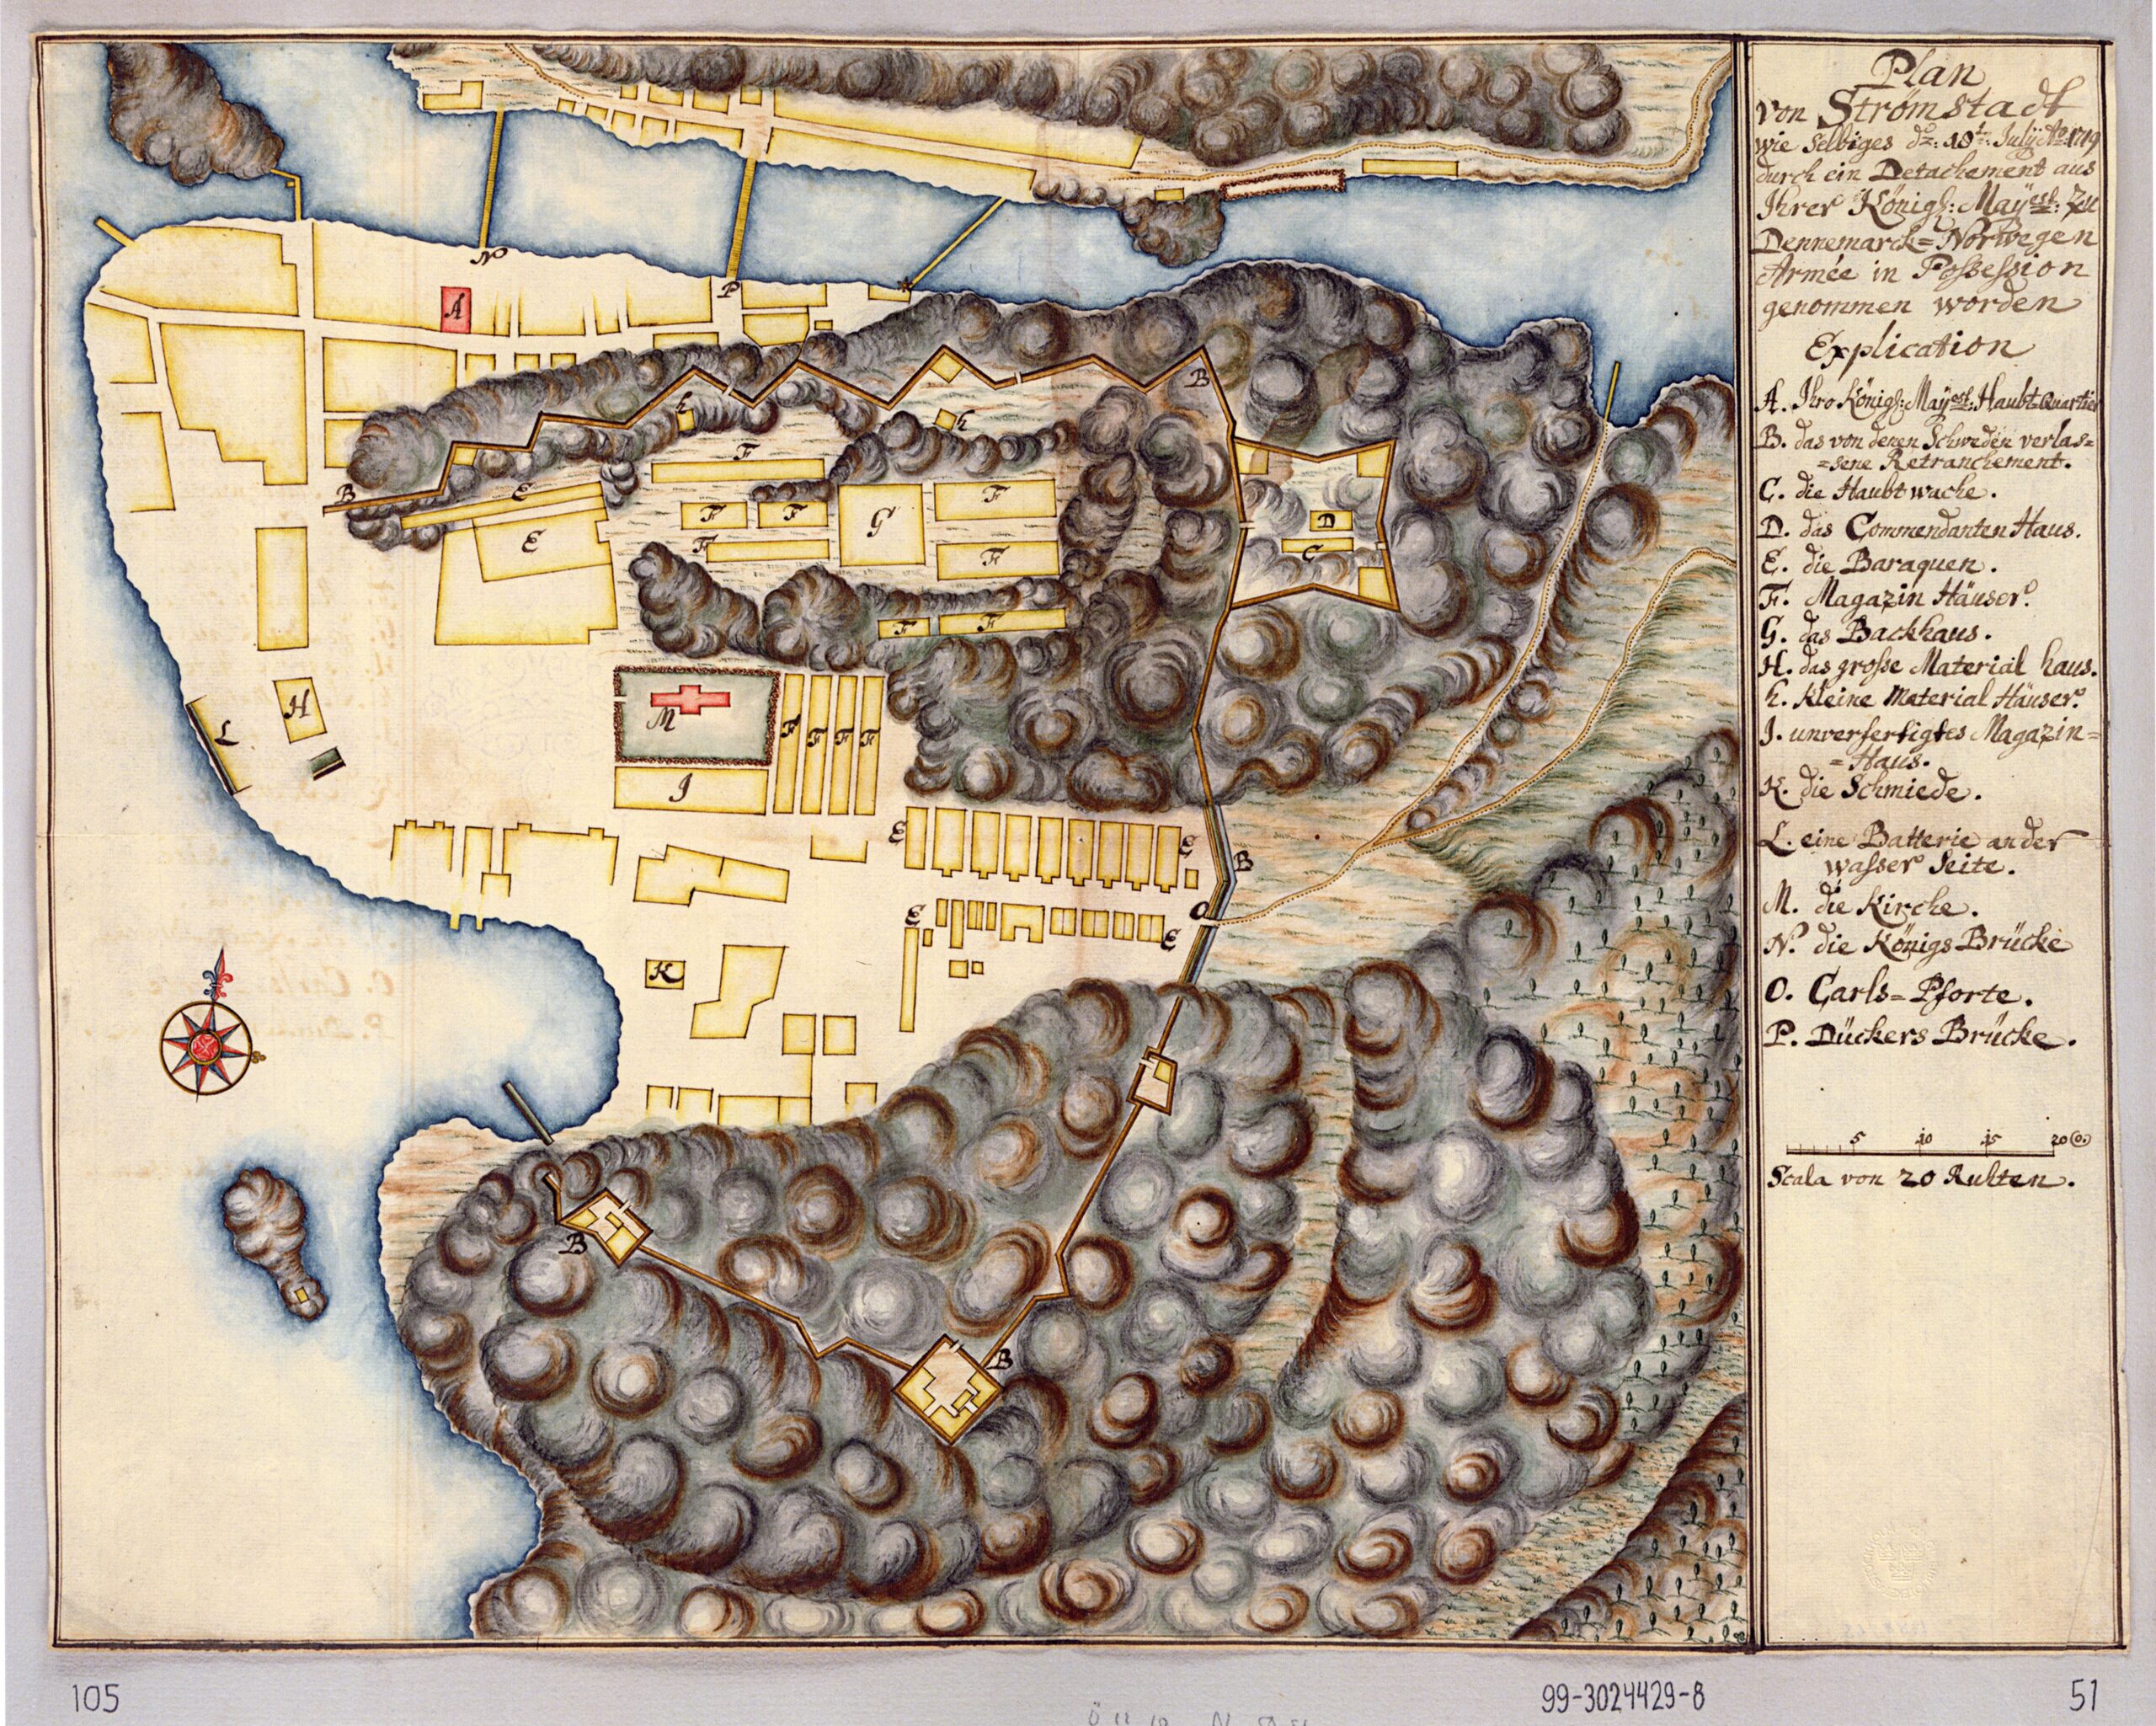 Plan
von Strömstadt
wie selbiges dn: 10t: Julÿ Ao 1719
durch ein Detachement aus
Ihrer Königl: Maÿest: zu
Dennemarck=Norwegen
Armée in Possession
genommen worden
Explication
A. Ihro Königl: Maÿest: Haubt-Quartier
B. das von denen Schweden verlas=
=sene Retranchement.
C. die Haubt wache.
D. das Commendanten Haus.
E. die Baraquen.
F. Magazin Häuser.
G. das Backhaus.
H. das grosse Material haus.
h. kleine Material Häuser.
I. unverfertigtes Magazin=
=Haus.
K. die Schmiede.
L. eine Batterie an der
wasser Seite.
M. die Kirche.
N. die Königs Brücke
O. Carls=Pforte.
P. Dückers Brücke.
5 10 15 20
Scala von 20 Ruhten.
N
P
A
B
h
h
B
F
E
E
F
F
F
G
F
F
D
C
F
F
F
H
L
M
F
F
F
F
I
E
E
B
O
E
E
K
B
B
105
99-3024429-8
51